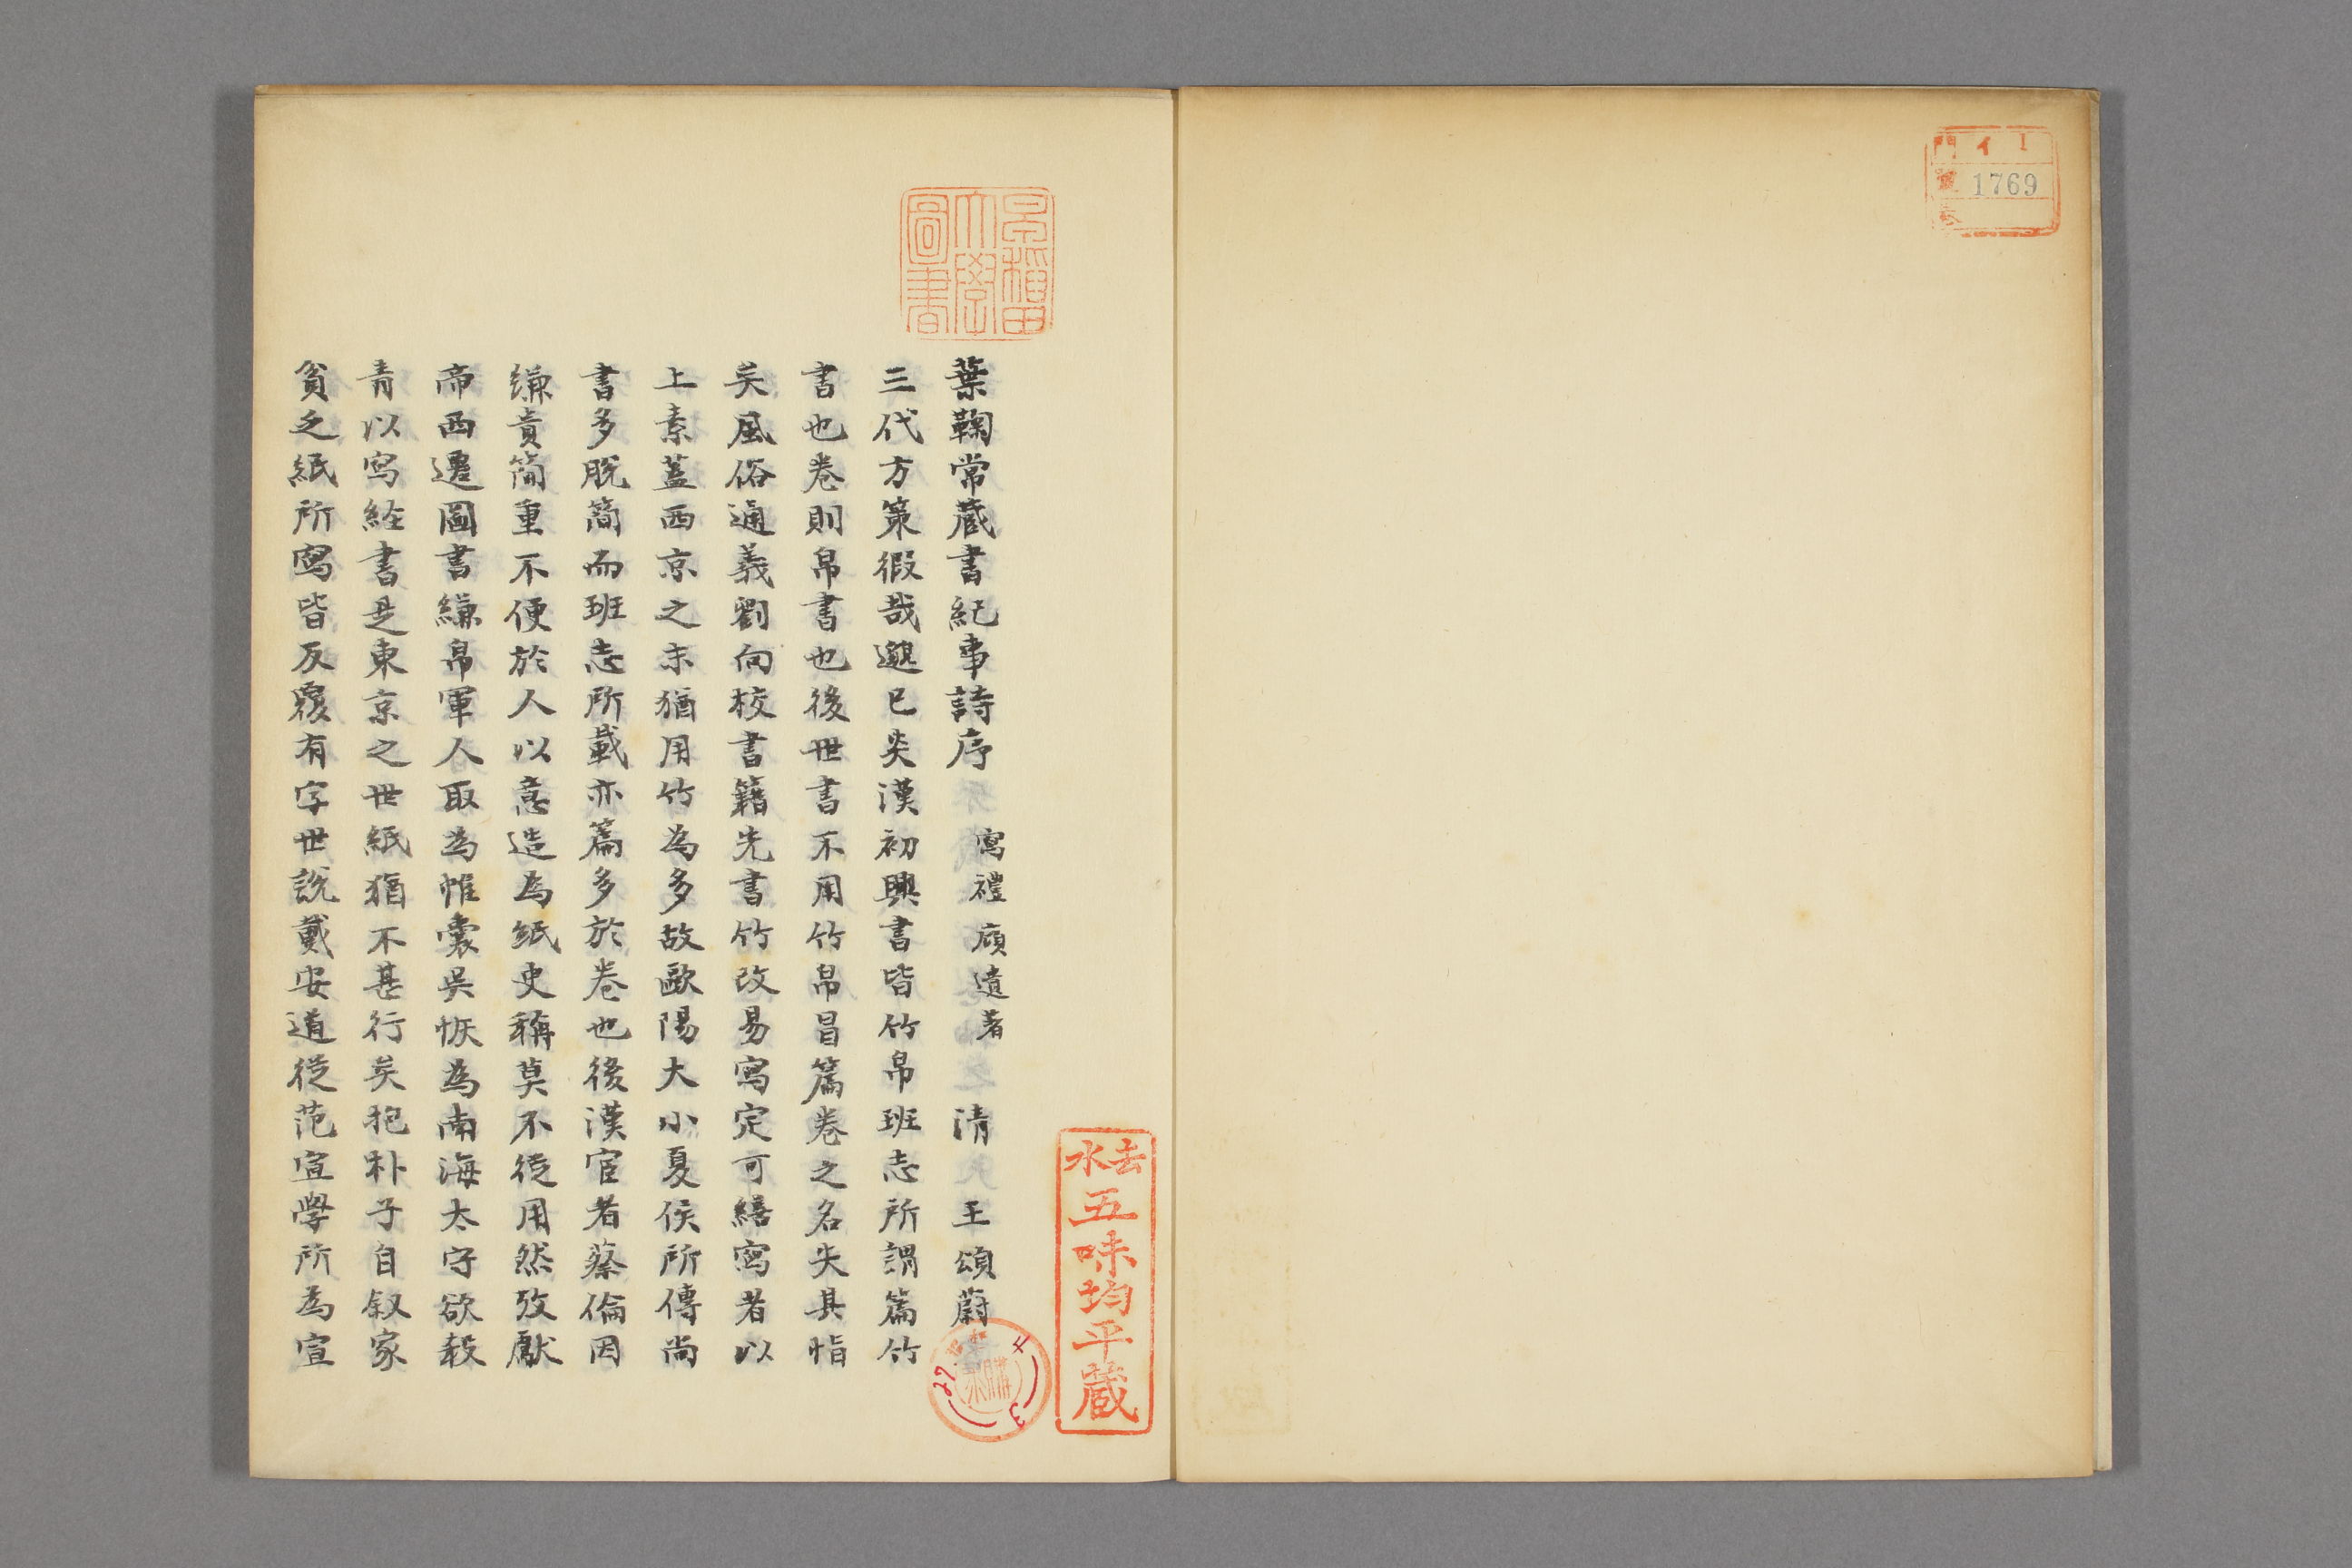 イ 1
門
號
1769
卷
早稲田
大學
圖書
葉鞠常蔵書紀事詩序 寫禮廎遺著 清 王頌蔚
三代方策徦哉邈已炎漢初興書皆竹帛班志所謂篇竹
書也卷則帛書也後世書不用竹帛昌篇卷之名失其恉
矣風俗通義劉向校書籍先書竹改易寫定可繕寫者以
上素蓋西京之末猶用竹為多故歐陽大小夏侯所傳尚
書多脫簡而班志所載亦篇多於卷也後漢宦者蔡倫因
縑貴簡重不便於人以意造為紙史稱莫不從用然攷獻
帝西遷圖書縑帛軍人取為帷囊吳恢為南海太守欲殺
青以寫經書是東京之世紙猶不甚行矣抱朴子自叙家
貧乏紙所寫皆反覆有字世說戴安道從范宣學所為宣
去水
五味均平蔵
購求